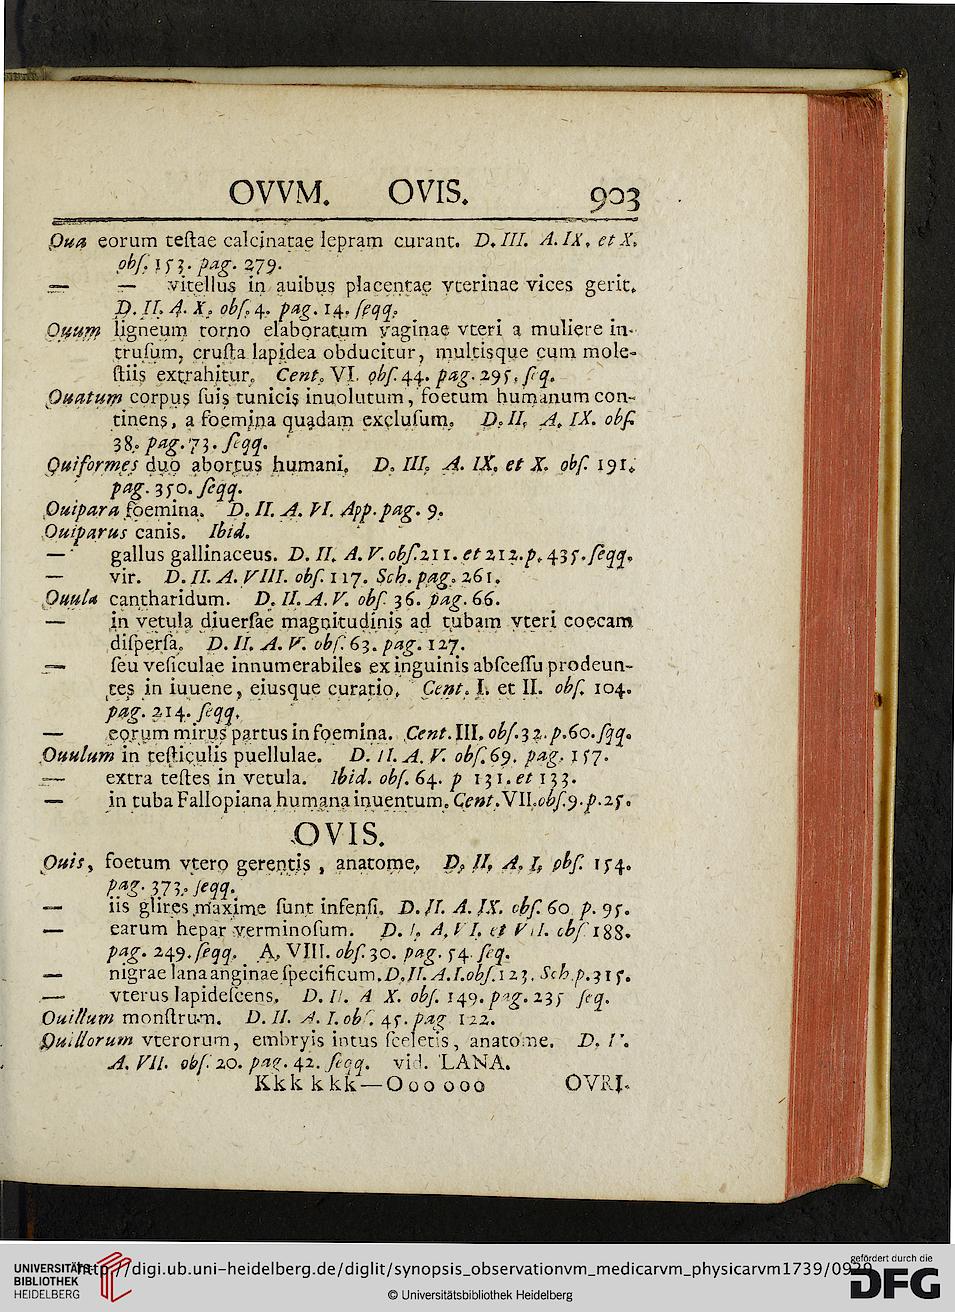 OVVM. OVIS. 903
Oua eorum teſtae calcinatae lepram curant. D. III. A. IX. et X.
obſ. 153. pag. 279.
— — vitellus in auibus placentae vterinae vices gerit.
D. II. A. X. obſ. 4. pag. 14. ſeqq.
Ouum ligneum torno elaboratum vaginae vteri a muliere in-
truſum, cruſta lapidea obducitur, multisque cum mole-
ſtiis extrahitur. Cent. VI. obſ. 44. pag. 295. ſeq.
Ouatum corpus ſuis tunicis inuolutum, foetum humanum con-
tinens, a foemina quadam excluſum. D. II. A. IX. obſ.
38. pag. 73. ſeqq.
Ouiformes duo abortus humani. D. III. A. IX. et X. obſ. 191.
pag. 350. ſeqq.
Ouipara foemina. D. II. A. VI. App. pag. 9.
Ouiparus canis. Ibid.
— gallus gallinaceus. D. II. A. V. obſ. 211. et 212. p. 435. ſeqq.
— vir. D. II. A. VIII. obſ. 117. Sch. pag. 261.
Ouula cantharidum. D. II. A. V. obſ. 36. pag. 66.
— in vetula diuerſae magnitudinis ad tubam vteri coecam
diſperſa. D. II. A. V. obſ. 63. pag. 127.
— ſeu veſiculae innumerabiles ex inguinis abſceſſu prodeun-
tes in iuuene, eiusque curatio. Cent. I. et II. obſ. 104.
pag. 214. ſeqq.
— eorum mirus partus in foemina. Cent. III. obſ. 32. p. 60. ſqq.
Ouulum in teſticulis puellulae. D. II. A. V. obſ. 69. pag. 157.
— extra teſtes in vetula. Ibid. obſ. 64. p 131. et 133.
— in tuba Fallopiana humana inuentum. Cent. VII. obſ. 9. p. 25.
OVIS.
Ouis, foetum vtero gerentis, anatome. D. II. A. I. obſ. 154.
pag. 373. ſeqq.
— iis glires maxime ſunt infenſi. D. II. A. IX. obſ. 60 p. 95.
— earum hepar verminoſum. D. I. A. VI. et VII. obſ 188.
pag. 249. ſeqq. A. VIII. obſ. 30. pag. 54. ſeq.
— nigrae lana anginae ſpecificum. D. II. A. I. obſ. 123. Sch. p. 315.
— vterus lapideſcens. D. II. A X. obſ. 149. pag. 235 ſeq.
Ouillum monſtrum. D. II. A. I. obſ. 45. pag 122.
Ouillorum vterorum, embryis intus ſceletis, anatome. D.
A. VII. obſ. 20. pag. 42. ſeqq. vid. LANA.
Kkk kkk—Ooo ooo OVRI.
UNIVERSITÄTS-
BIBLIOTHEK
HEIDELBERG
http://digi.ub.uni-heidelberg.de/diglit/synopsis_observationvm_medicarvm_physicarvm1739/0929
© Universitätsbibliothek Heidelberg
gefördert durch die
DFG